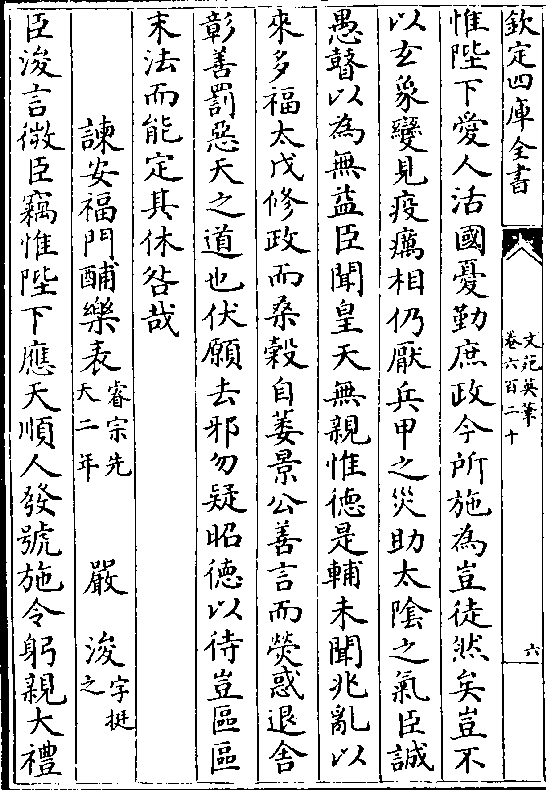 欽定四庫全書
文苑英華
卷六百二十
六
惟陛下愛人活國憂勤庶政今所施為豈徒然矣豈不
以玄象變見疫癘相仍厭兵甲之災助太陰之氣臣誠
愚瞽以為無益臣聞皇天無親惟德是輔未聞兆亂以
來多福太戊修政而桑榖自萎景公善言而熒惑退舍
彰善罰惡天之道也伏願去邪勿疑昭德以待豈區區
末法而能定其休咎哉
諫安福門酺樂表睿宗先天二年 嚴浚字挺之
臣浚言微臣竊惟陛下應天順人發號施令躬親大禮